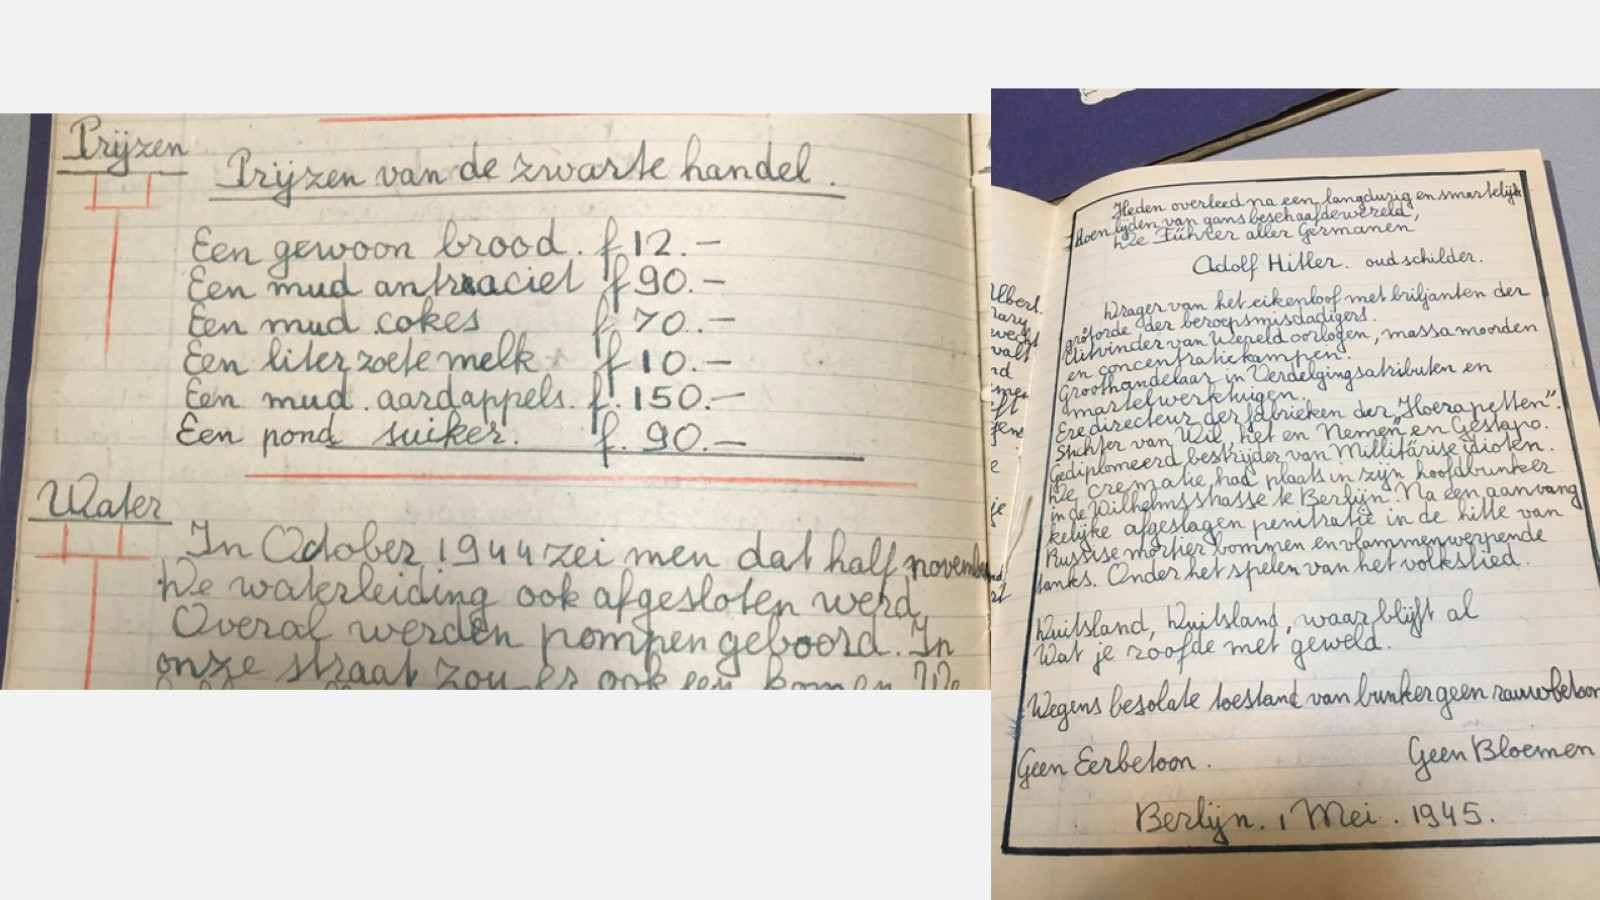 Prijzen
Prijzen van de zwarte handel.
Een gewoon brood. f 12.-
Een mud antraciet f 90.-
Een mud cokes f. 70.-
Een liter zoete melk f 10.-
Een mud aardappels. f. 150.-
Een pond suiker. f. 90.-
Water
In October 1944 zei men dat half november
De waterleiding ook afgesloten werd
Overal werden pompen geboord. In
onze straat zou er ook een komen We
Heden overleed na een langdurig en smartelijk
lijden van gans beschaafde wereld,
De Führer aller Germanen
Adolf Hitler. oud schilder.
Drager van het eikenloof met briljanten der
grôforde der beroepsmisdadigers.
Uitvinder van Wereld oorlogen, massamoorden
en concentratiekampen.
Groothandelaar in Verdelgingsatributen en
martelwerktuigen.
Eredirecteur der fabrieken der "Hoerapetten".
Stichter van Wil, het en Nemen" en Gestapo.
Gediplomeerd bestrijder van Millitärise idioten.
De crematie had plaats in zijn hoofdbunker
in de Wilhelmsstrasse te Berlijn. Na een aanvang
kelijke afgeslagen penitratie in de hitte van
Russise mortier bommen en vlammenwerpende
tanks. Onder het spelen van het volkslied.
Duitsland, Duitsland, waar blijft al
Wat je roofde met geweld.
Wegens besolate toestand van bunker geen rauwbetoon
Geen Eerbetoon. Geen Bloemen
Berlijn. 1 Mei. 1945.